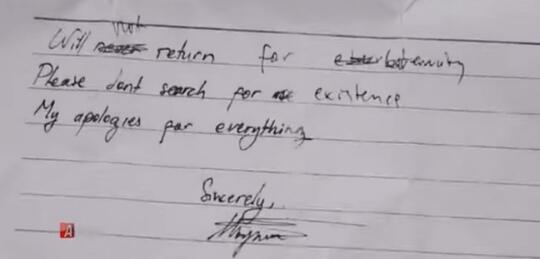 Will not return for
Please dont search for existence
My apologies for everything
Sincerely,
A